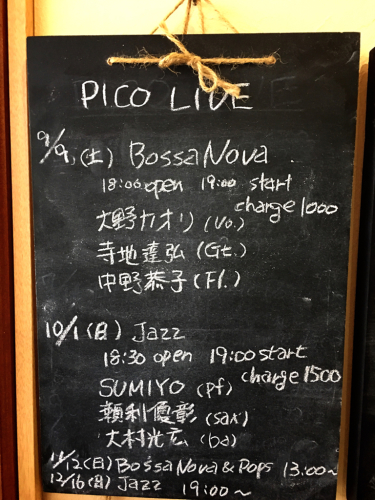 PICO LIVE
9/9 (土) BossaNova
18:00 open 19:00 start
charge 1000
大野カオリ (Vo.)
寺地達弘 (Gt.)
中野恭子 (Fl.)
10/1 (日) Jazz
18:30 open 19:00 start
charge 1500
SUMIYO (pf)
頼利優彰 (sax)
大村光広 (ba)
11/12 (日) BossaNova & Pops 13:00~
12/16 (土) Jazz 19:00~